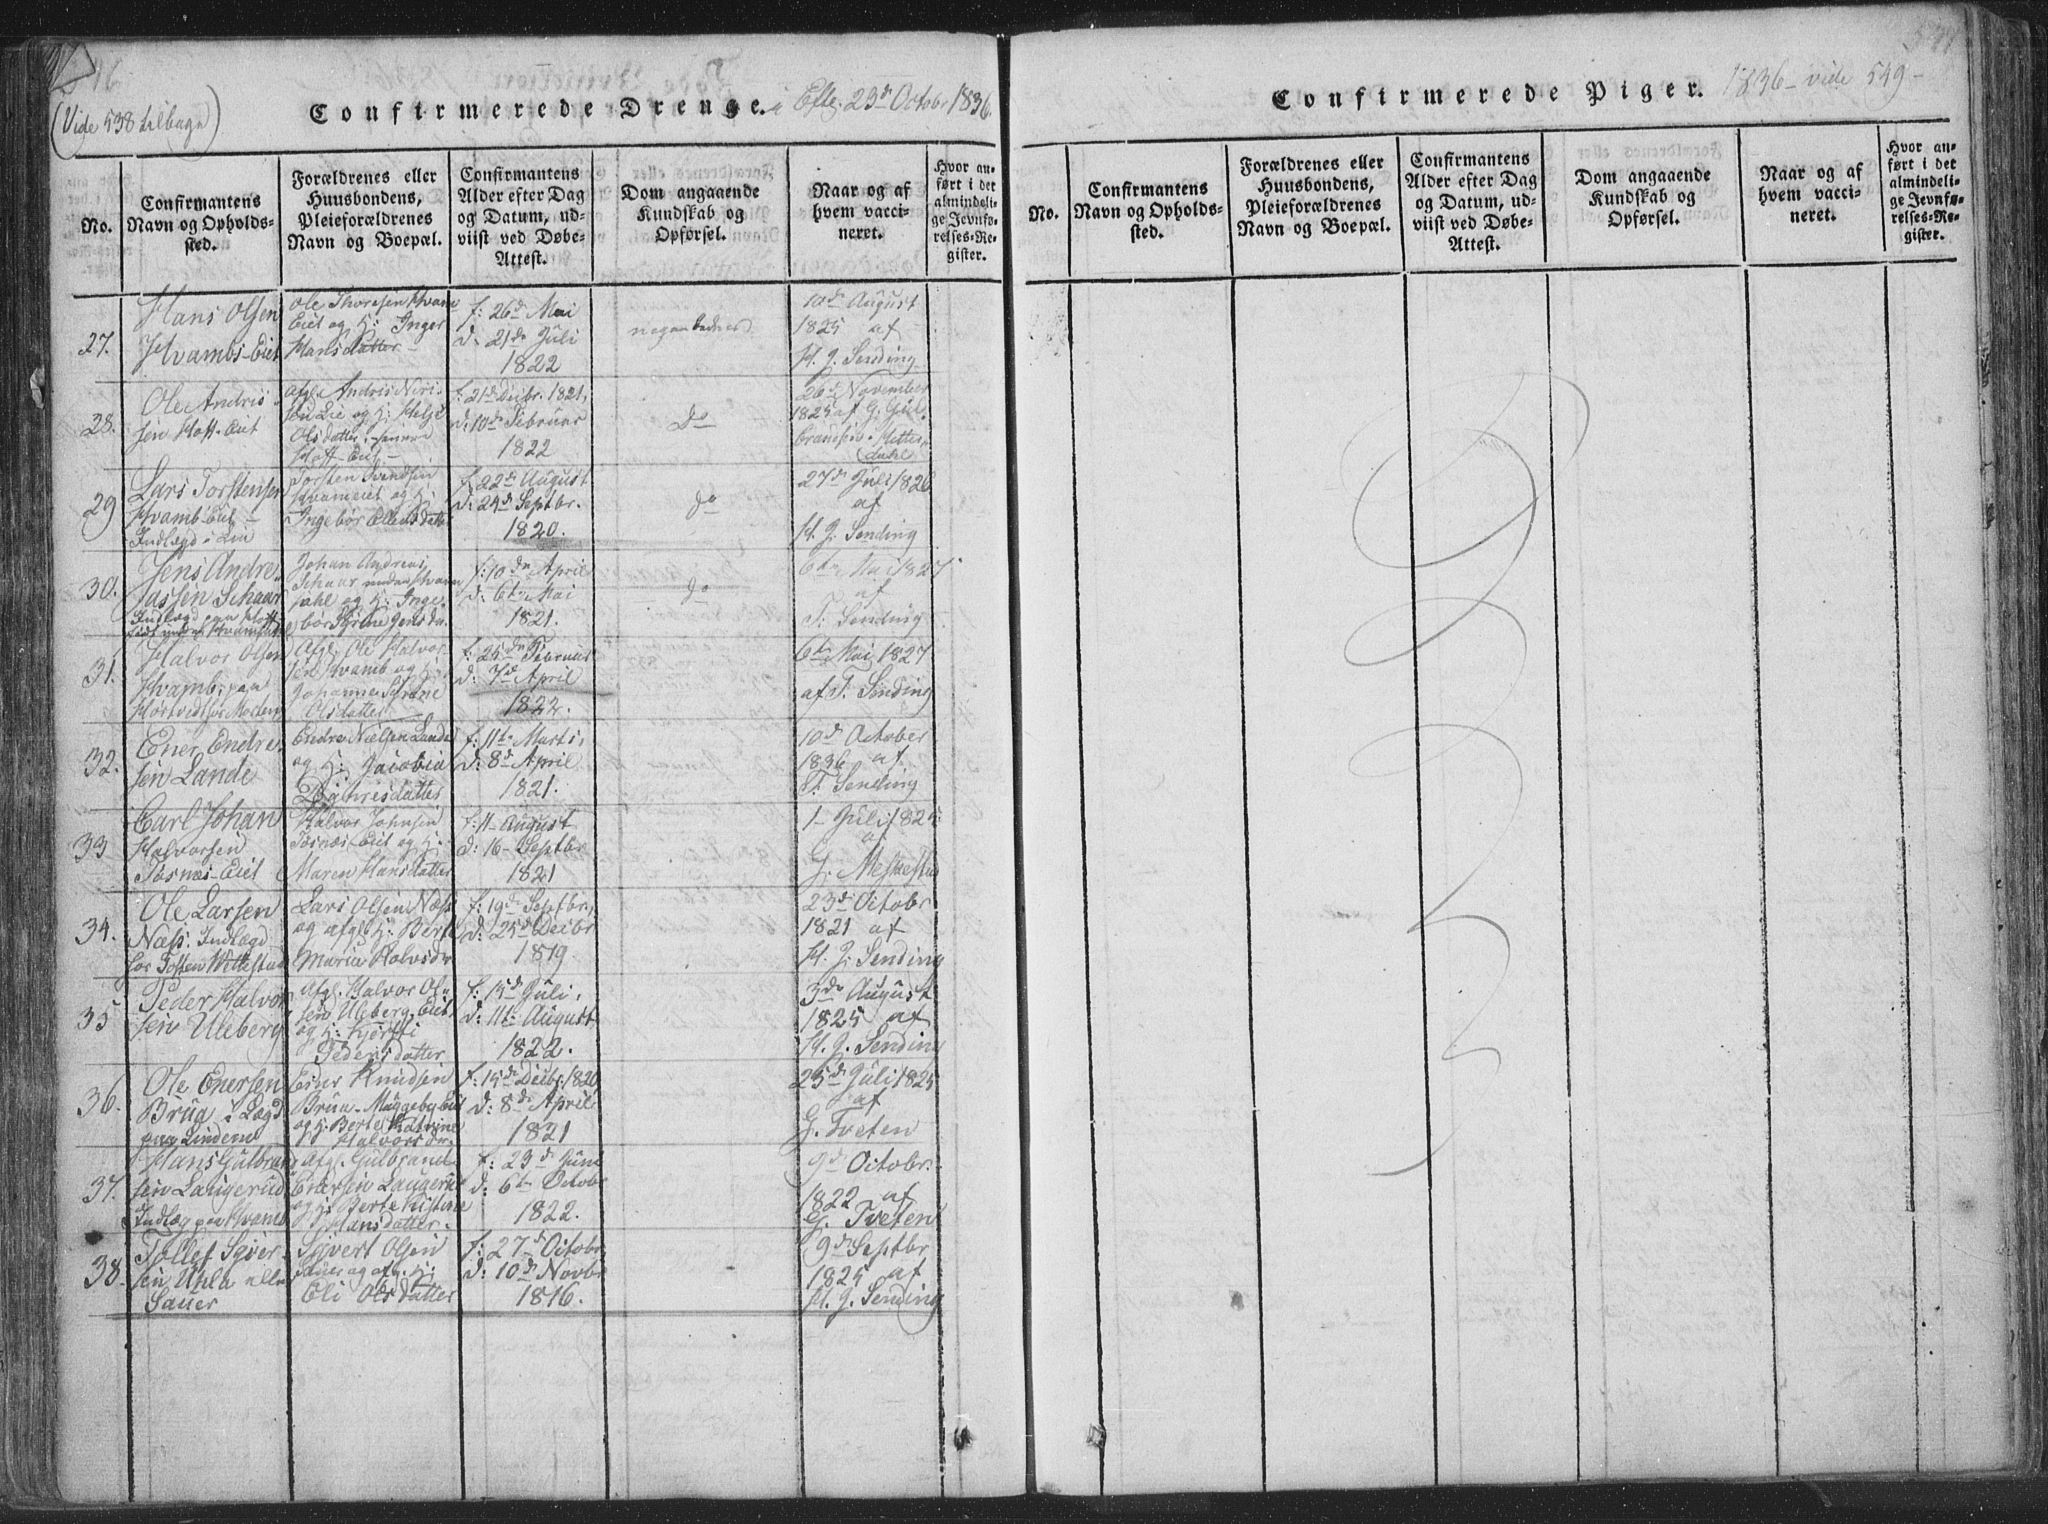 (Vide 538 tilbage)
Confirmerede Drenge. i Efte. 23de Octobr 1836.
No.
Confirmantens Navn og Opholds-
sted.
Forældrenes eller
Huusbondens,
Pleieforældrenes
Navn og Boepæl.
Confirmantens
Alder efter Dag
og Datum, ud-
viist ved Døbe-
Attest.
Dom angaaende
Kundskab og
Opførsel.
Naar og af
hvem vacci-
neret.
Hvor an-
ført i det
almindeli-
ge Jevnfø-
relses-Re-
gister.
27.
Hans Olsen
Hvambs-Eiet
Ole Thoresen Hvam
Eiet og H: Inger
Hansdatter
f: 26de Mai
d. 21de Juli
1822
10de August
1825 af
H. J. Sending
28.
Ole Andris-
sen Hoff-Eiet
Afg. Andris
Lie og H: Helge
Olsdatter
Hoff-Eiet
f: 21de Decbr. 1821,
d. 10de Februar
1822
do
26de November
1825 af G. Gul-
brandsen Mitter-
dahl
29
Lars Torstensen
Hvamb-Eiet
Indlægd i Lia
Torsten Svendsen
Hvameiet og H:
Ingebor Ellensdatter
f: 22de August
d: 24de Septbr.
1820.
do
27de Juli 1826
af
H. J. Sending
30.
Jens Andre-
assen Schaar
Johan Andreas
Schaar under Hvam
og H: Inge-
bor
f: 10de April
d: 6te Mai
1821.
do
6te Mai 1827
af
T. Sending
31.
Halvor Olsen
Hvamb, paa
Afg. Ole Halvor-
sen Hvamb og H:
Johanne
Olsdatter
f: 25de Februar
d: 7de April
1822.
6te Mai 1827
af T. Sending
32.
Ener Endre-
sen Lande
Endre Nielsen Lande
og H: Jacobia
f: 11te Marts,
d: 8de April
1821.
10de October
1836 af
T. Sending
33
Carl Johan
Halvorsen
Tosnæs-Eiet
Halvor Johnsen
Tosnæs-Eiet og H:
Maren Hansdatter
f: 11- August
d: 16- Septbr
1821
1- Juli 1825
af
G.
34.
Ole Larsen
Næss. Indlægd
hos Tosten Wettestad
Lars Olsen Næss
og afg. H: Berte
Marie
f: 19de Septbr,
d: 25de Decbr
1819
23de Octobr
1821 af
H. J. Sending
35.
Peder Halvor-
sen Uleberg
Afg. Halvor Ol-
sen Uleberg-Eiet,
og H: Kjersti
Pedersdatter
f: 15de Juli,
d: 11te August
1822.
3de August
1825 af
H. J. Sending
36.
Ole Enersen
Brua i Lægd
paa Lindem
Ener Knudsen
Brua-Muggeby Eiet
og H: Berte Katrine
Halvorsdr.
f: 15de Decbr. 1820
d: 8de April
1821
25de Juli 1825
af
G. Tveten
37.
Hans Gulbrand-
sen Laugerud
Indlæg paa Hvamb
Afg. Gulbrand
Enersen Laugerud
og H: Berte Kistine
Hansdatter.
f: 23de Juni
d: 6te Octobr
1822.
9de Octobr.
1822 af
G. Tveten
38.
Tollef Siver-
sen Uhla eller
Sauer
Sivert Olsen
Sauer og afg. H:
Eli Olsdatter
f: 27de Octobr
d: 10de Novbr
1816.
9de Septbr
1825 af
H. J. Sending
Confirmerede Piger. 1836- vide 549-
No.
Confirmantens
Navn og Opholds-
sted.
Forældrenes eller
Huusbondens,
Pleieforældrenes
Navn og Boepæl.
Confirmantens
Alder efter Dag
og Datum, ud-
viist ved Døbe-
Attest.
Dom angaaende
Kundskab og
Opførsel.
Naar og af
hvem vacci-
neret.
Hvor an-
ført i det
almindeli-
ge Jevnfø-
relses-Re-
gister.